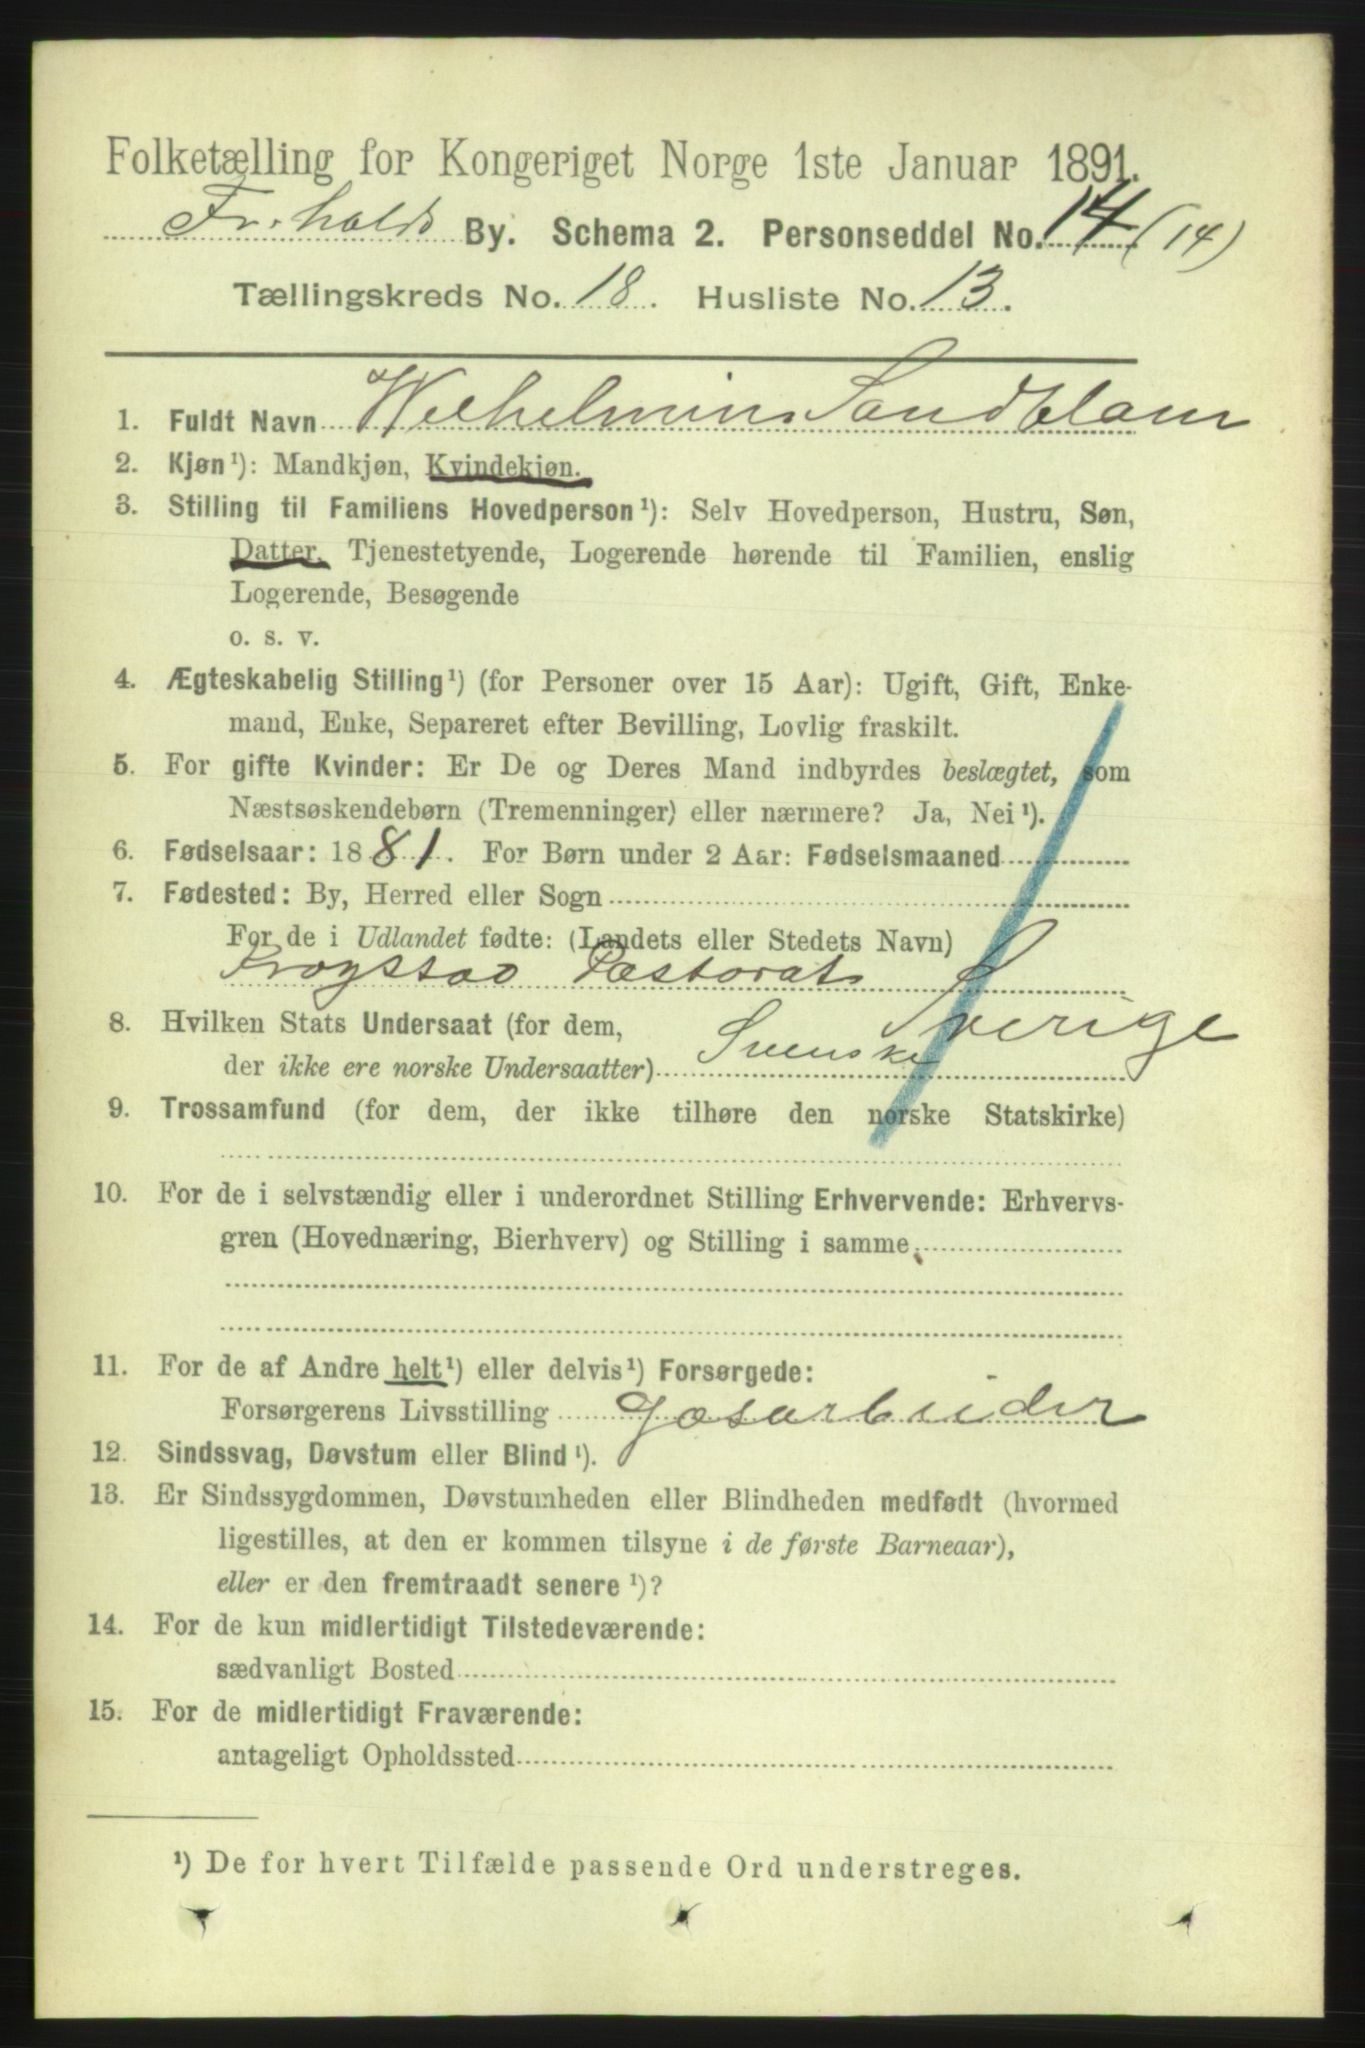 Folketælling for Kongeriget Norge 1ste Januar 1891.
Fr.halds By. Schema 2. Personseddel No. 14 (14)
Tællingskreds No. 18. Husliste No. 13.
1. Fuldt Navn Wilhelmine Sandblom
2. Kjøn¹): Mandkjøn, Kvindekjøn.
3. Stilling til Familiens Hovedperson¹): Selv Hovedperson, Hustru, Søn,
Datter, Tjenestetyende, Logerende hørende til Familien, enslig
Logerende, Besøgende
o. s. v.
4. Ægteskabelig Stilling¹) (for Personer over 15 Aar): Ugift, Gift, Enke-
mand, Enke, Separeret efter Bevilling, Lovlig fraskilt.
5. For gifte Kvinder: Er De og Deres Mand indbyrdes beslægtet, som
Næstsøskendebørn (Tremenninger) eller nærmere? Ja, Nei¹).
6. Fødselsaar: 1881. For Børn under 2 Aar: Fødselsmaaned
7. Fødested: By, Herred eller Sogn
For de i Udlandet fødte: (Landets eller Stedets Navn)
Krogstad Pastorat Sverige
8. Hvilken Stats Undersaat (for dem,
der ikke ere norske Undersaatter) Svenske
9. Trossamfund (for dem, der ikke tilhøre den norske Statskirke)
10. For de i selvstændig eller i underordnet Stilling Erhvervende: Erhvervs-
gren (Hovednæring, Bierhverv) og Stilling i samme
11. For de af Andre helt¹) eller delvis¹) Forsørgede:
Forsørgerens Livsstilling Gasarbeider
12. Sindssvag, Døvstum eller Blind¹).
13. Er Sindssygdommen, Døvstumheden eller Blindheden medfødt (hvormed
ligestilles, at den er kommen tilsyne i de første Barneaar),
eller er den fremtraadt senere¹)?
14. For de kun midlertidigt Tilstedeværende:
sædvanligt Bosted
15. For de midlertidigt Fraværende:
antageligt Opholdssted
¹) De for hvert Tilfælde passende Ord understreges.